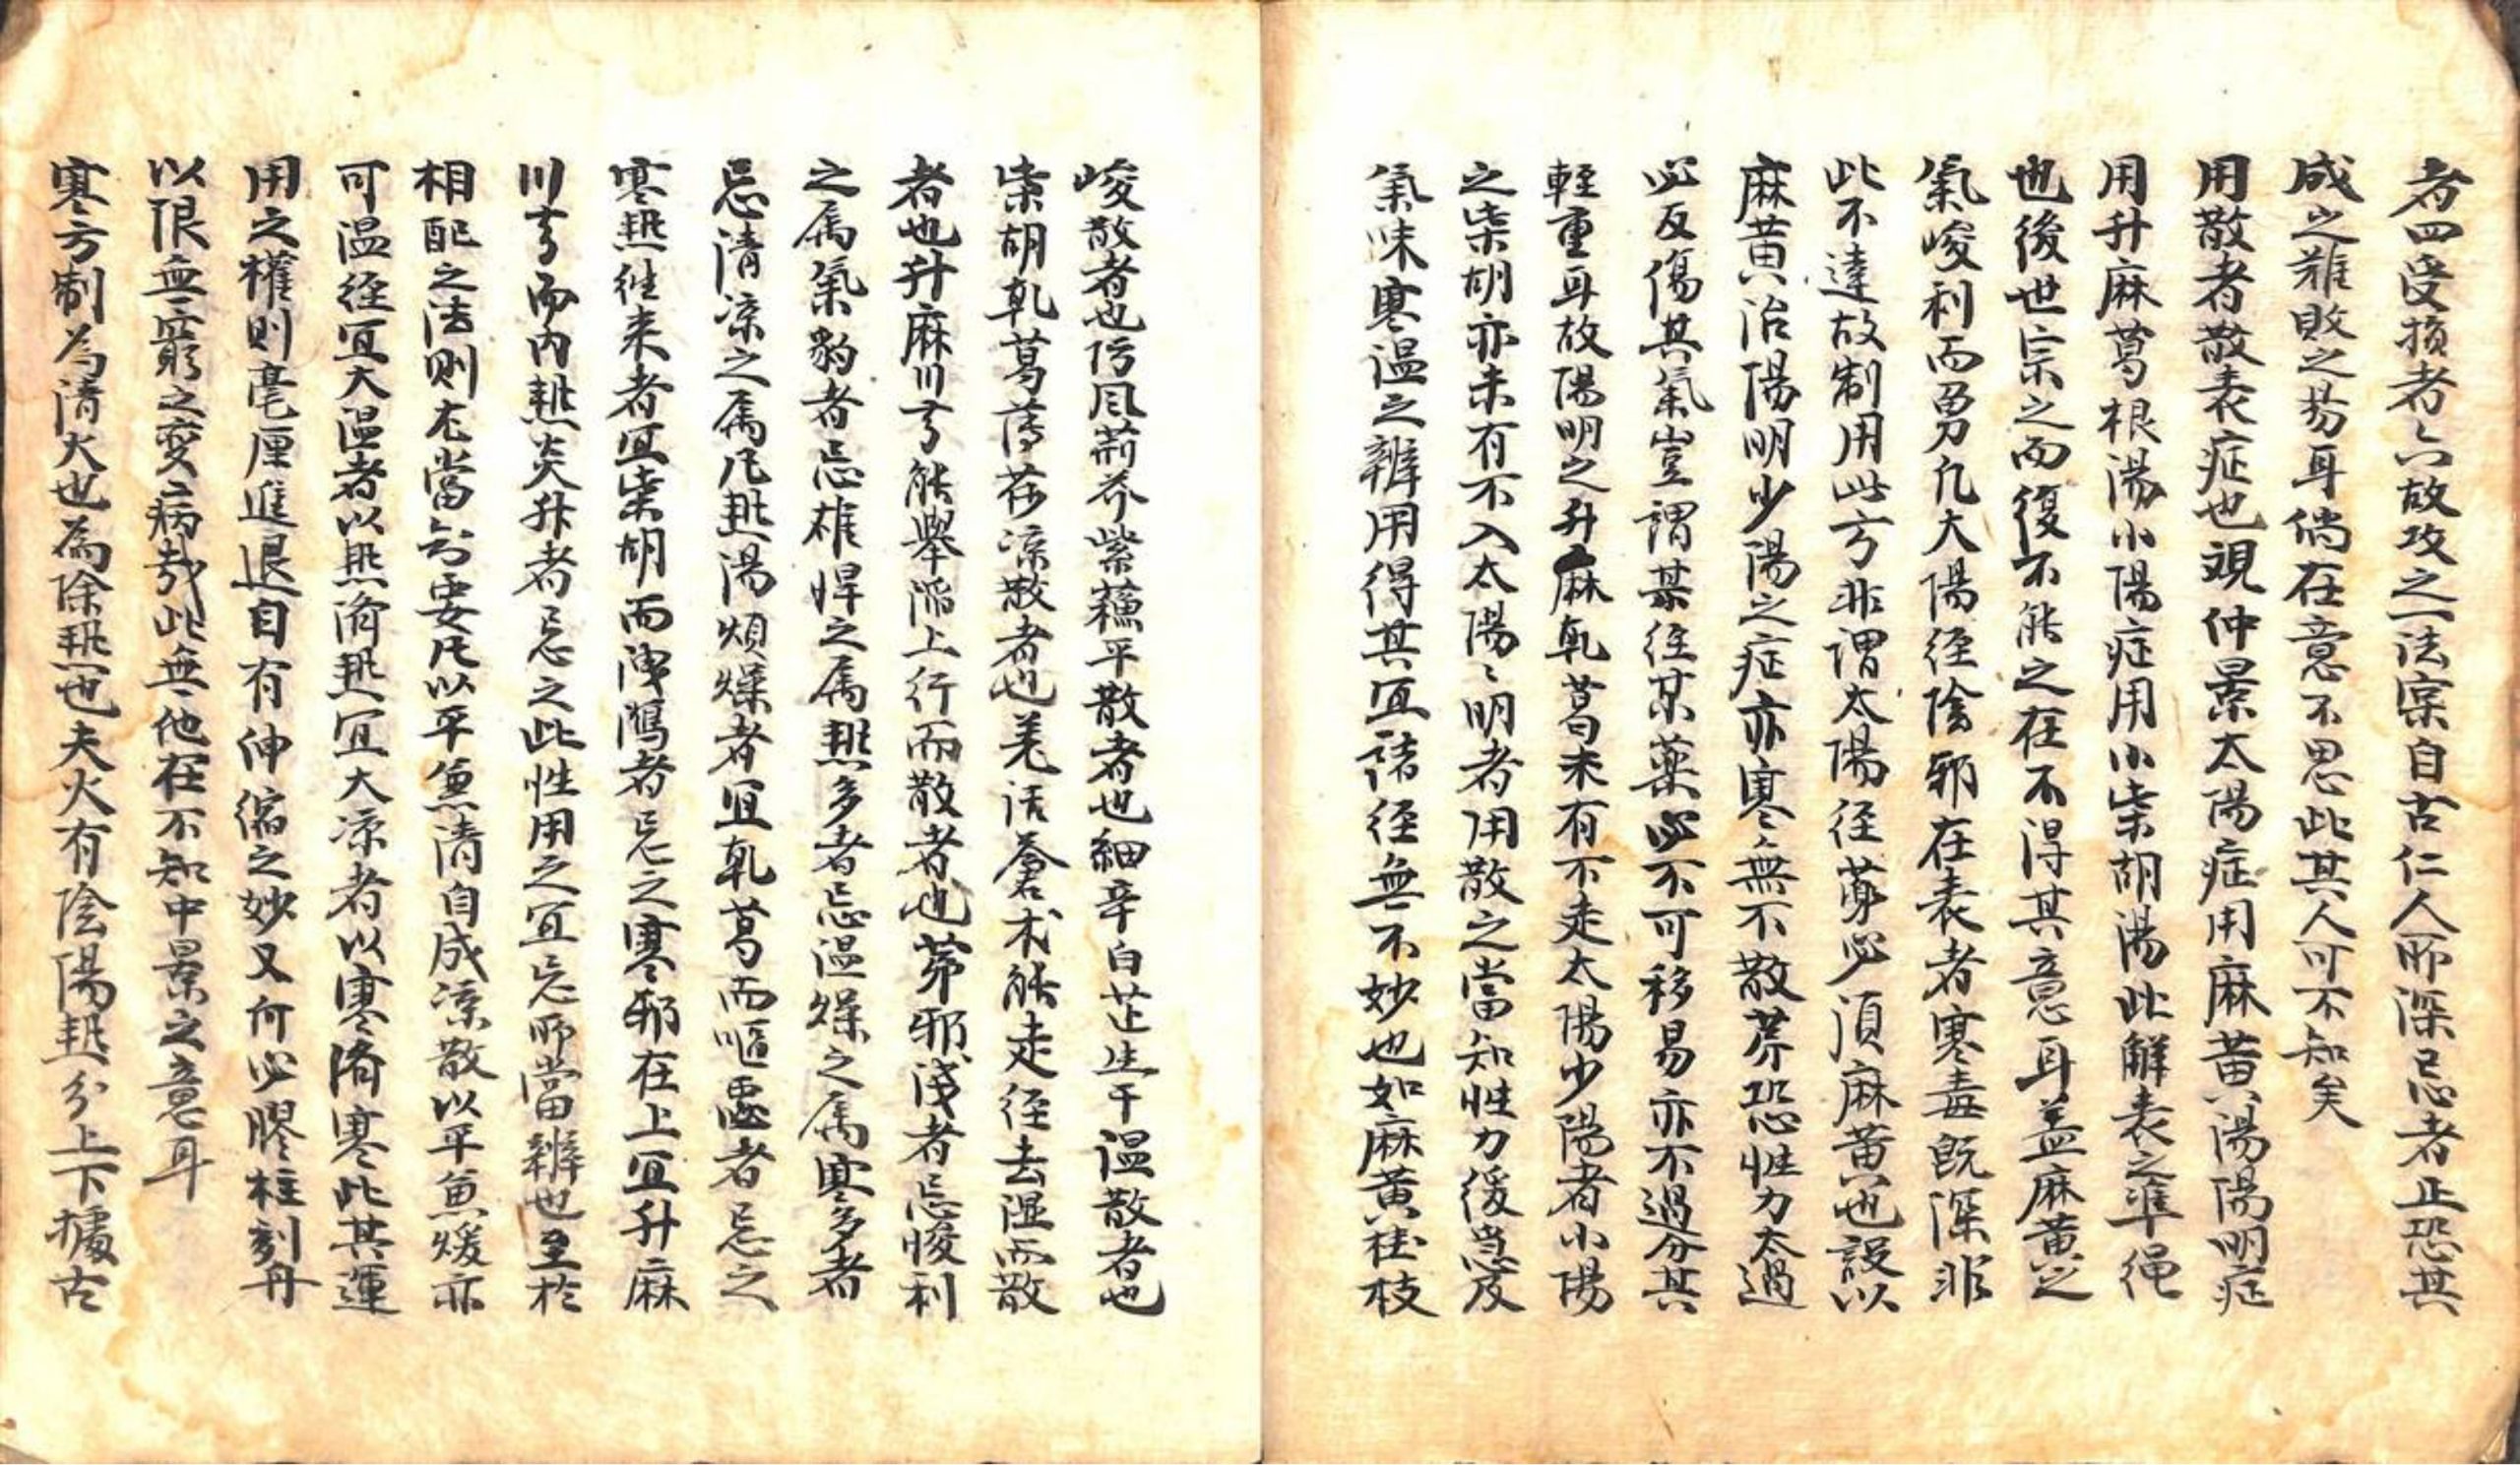 者四受損者六故攻之一法寔自古仁人所深忌者正恐其
成之難敗之易耳倘在意不思此其人可不知矣
用散者散表症也覌仲景太陽症用麻黄湯陽明症
用升麻葛根湯小陽症用小柴胡湯此觧表之準绳
也後世宗之而復不能之在不得其意耳盖麻黄之
氣峻利而勇凢大陽徑陰邪在表者寒毒既深非
此不達故制用此方非謂太陽徑藥必湏麻黄也設以
麻黄治陽明少陽之症亦寒無不散苐恐性力太過
必反傷其氣豈謂某徑某藥必不可移易亦不過分其
輕重耳故陽明之升麻乹葛未有不走太陽少陽者小陽
之柴胡亦未有不入太陽〻明者用散之當知性力缓急及
氣味寒温之辨用得其宜諸徑無不妙也如麻黄桂枝
峻散者也防風荊芥紫蘓平散者也細辛白芷生干温散者也
柴胡乹葛薄荷凉散者也羗活蒼朮能走徑去湿而散
者也升麻川芎能舉陷上行而散者也苐邪浅者忌峻利
之属氣豹者忌雄悍之属熱多者忌温燥之属寒多者
忌清凉之属凡熱陽煩燥者宜乹葛而嘔恶者忌之
寒熱徃来者宜柴胡而洩瀉者忌之寒邪在上宜升麻
川芎而内熱炎升者忌之此性用之宜忌所當辨也至於
相配之法则尤當知要凡以平兼清自成凉散以平兼煖亦
可温徑宜大温者以熱济熱宜大凉者以寒济寒此其運
用之權则毫厘進退自有伸縮之妙又何必膠柱刻舟
以限無窮之变病哉此無他在不知中景之意耳
寒方制為清火也為除熱也夫火有陰陽熱分上下據古